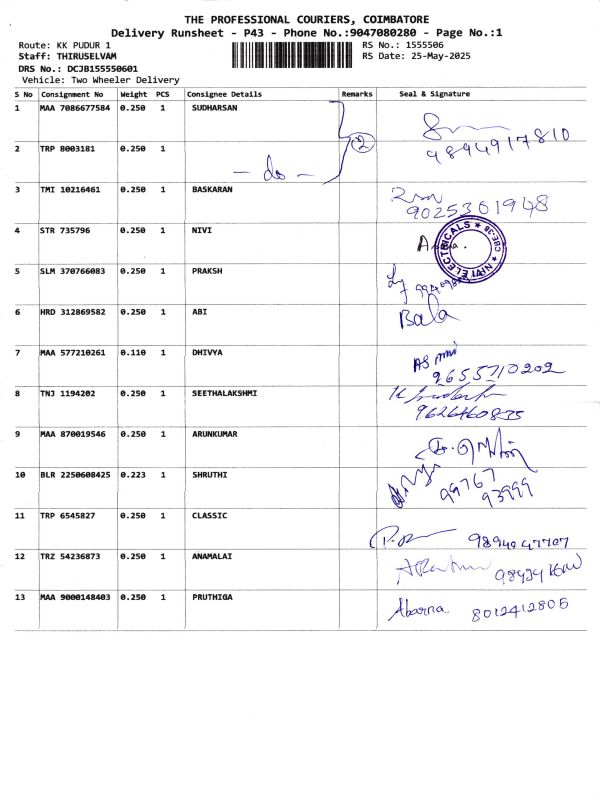 THE PROFESSIONAL COURIERS, COIMBATORE
Delivery Runsheet - P43 - Phone No.:9047080280 - Page No.:1
Route: KK PUDUR 1 RS No.: 1555506
Staff: THIRUSELVAM RS Date: 25-May-2025
DRS No.: DCJB155550601
Vehicle: Two Wheeler Delivery
S No Consignment No Weight PCS Consignee Details Remarks Seal & Signature
1 MAA 7086677584 0.250 1 SUDHARSAN
9894917810
2 TRP 8003181 0.250 1 2
- do -
3 TMI 10216461 0.250 1 BASKARAN
9025301948
4 STR 735796 0.250 1 NIVI
NIVI ELECTRICALS ★ CBE-38 ★
5 SLM 370766083 0.250 1 PRAKSH
6 HRD 312869582 0.250 1 ABI Bala
7 MAA 577210261 0.110 1 DHIVYA
9655710202
8 TNJ 1194202 0.250 1 SEETHALAKSHMI
9626460835
9 MAA 870019546 0.250 1 ARUNKUMAR
10 BLR 2250608425 0.223 1 SHRUTHI 99767
93999
11 TRP 6545827 0.250 1 CLASSIC
12 TRZ 54236873 0.250 1 ANAMALAI
13 MAA 9000148403 0.250 1 PRUTHIGA Abarna.. 8012412805